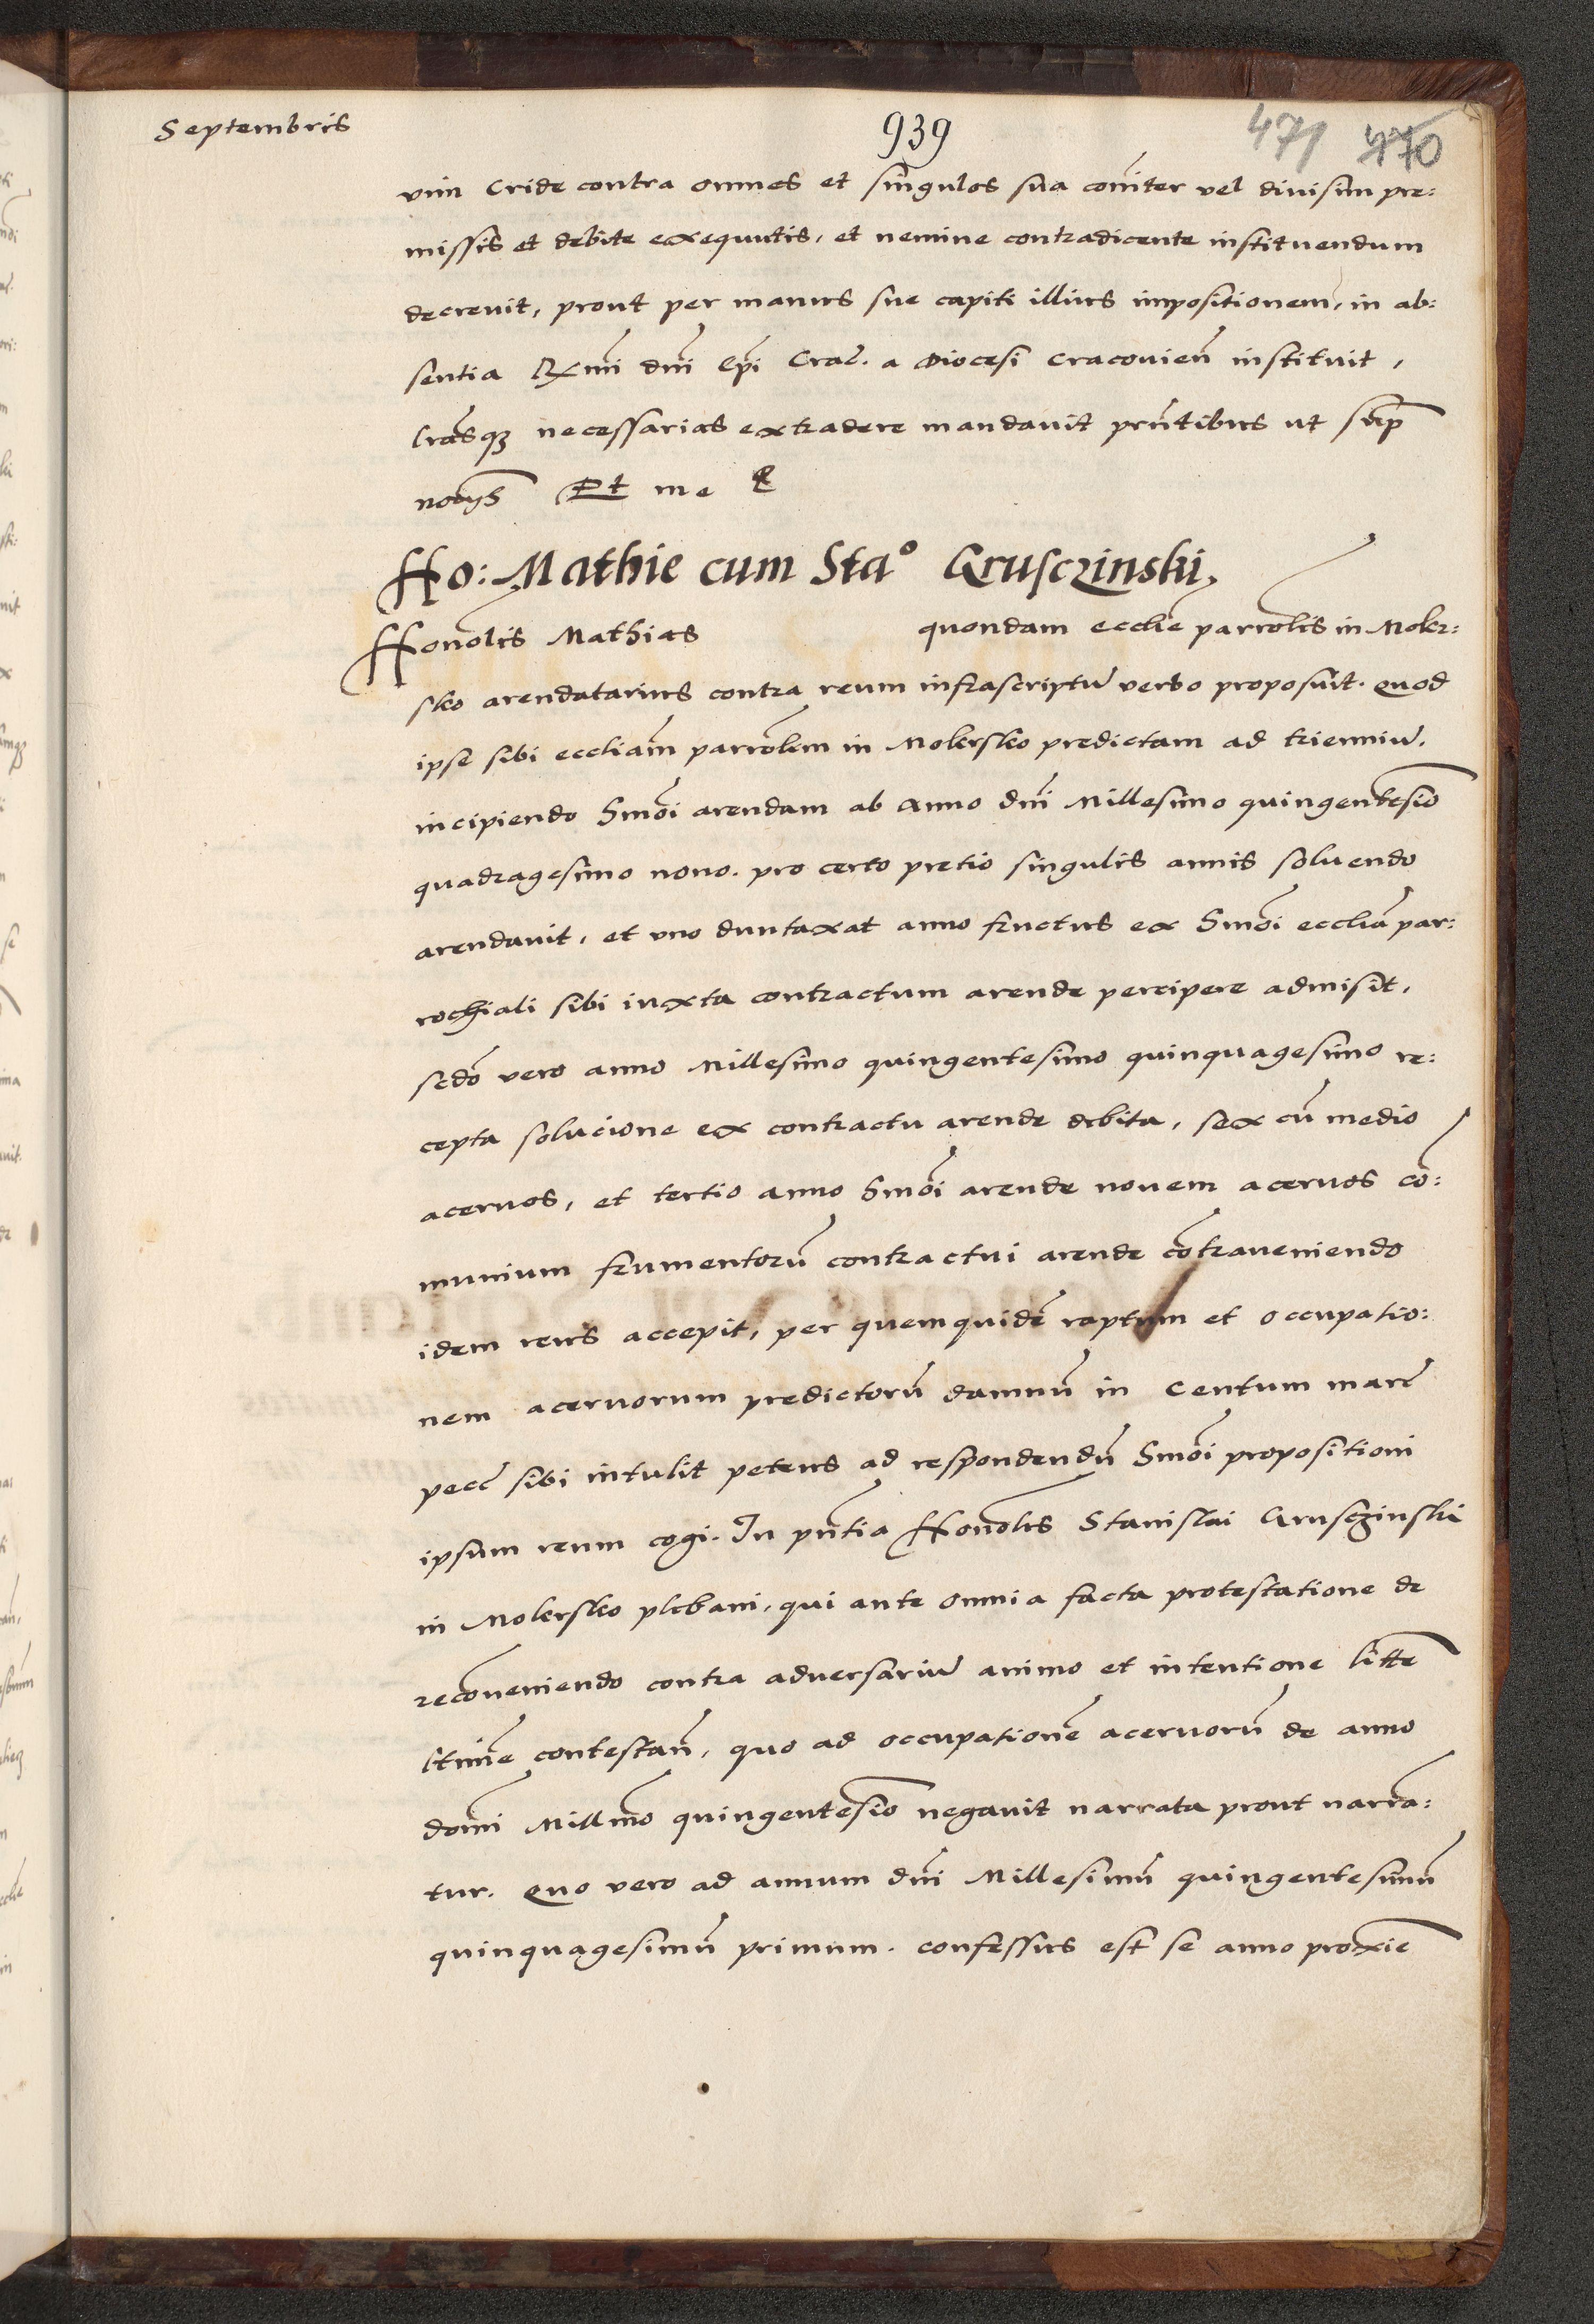 Septembris
939
471 470
vim Cride contra omnes et singulos sua coniter vel divisim pre:
missis et debite exequutis, et nemine contradicente instituendum
decrevit, prout per manus sue capiti illius impositionem, in ab:
sentia Rxmi dni Epi Crac. a Diocesi Cracovien instituit,
lrasqz necessarias extradere mandavit pntibus ut sup
Et me
Ho: Mathie cum Sta° Grusczinski,
Honolis Mathias quondam ecclie parrolis in Mokr:
sko arendatarius contra reum infrascriptu verbo proposuit. Quod
ipse sibi eccliam parrolem in Mokrsko predictam ad trienniu,
incipiendo Smoi arendam ab Anno dni Millesimo quingentesio
quadragesimo nono. pro certo pretio singulis annis solvendo
arendavit, et uno duntaxat anno fructus ex Smoi ecclia par:
rochiali sibi iuxta contractum arende percipere admisit,
sedo vero anno Millesimo quingentesimo quinquagesimo re:
cepta solucione ex contractu arende debita, sex cu medio
acervos, et tertio anno Smoi arende novem acervos co:
munium frumentoru contractui arende cotraveniendo
idem reus accepit, per quemquide raptum et occupatio:
nem acervorum predictoru damnu in Centum marc
pecc sibi intulit petens ad respondendu Smoi propositioni
ipsum reum cogi. In pntia Honolis Stanislai Grusczinski
in Mokrsko plebani, qui ante omnia facta protestatione de
recoveniendo contra adversariu animo et intentione litte
ltime contestan, quo ad occupatione acervoru de anno
domi Millmo quingentesio negavit narrata prout narra:
tur. Quo vero ad annum dni Millesimu quingentesimu
quinquagesimu primum. confessus est se anno proxie